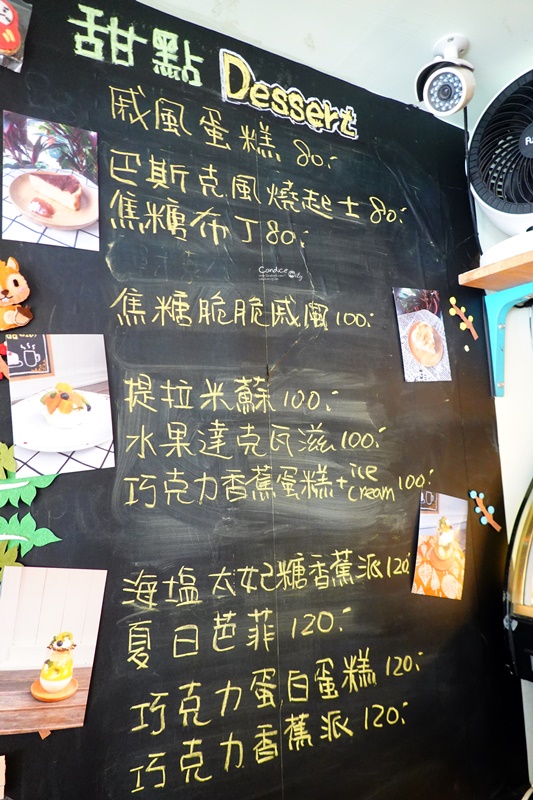 甜點 Dessert
戚風蛋糕 80.-
巴斯克風燒起士 80.-
焦糖布丁 80.-
Candice City
焦糖脆脆戚風 100.-
提拉米蘇 100.-
水果達克瓦滋 100.-
巧克力香蕉蛋糕+ice cream 100.-
海塩太妃糖香蕉派 120
夏日芭菲 120.-
巧克力蛋白蛋糕 120.-
巧克力香蕉派 120.-